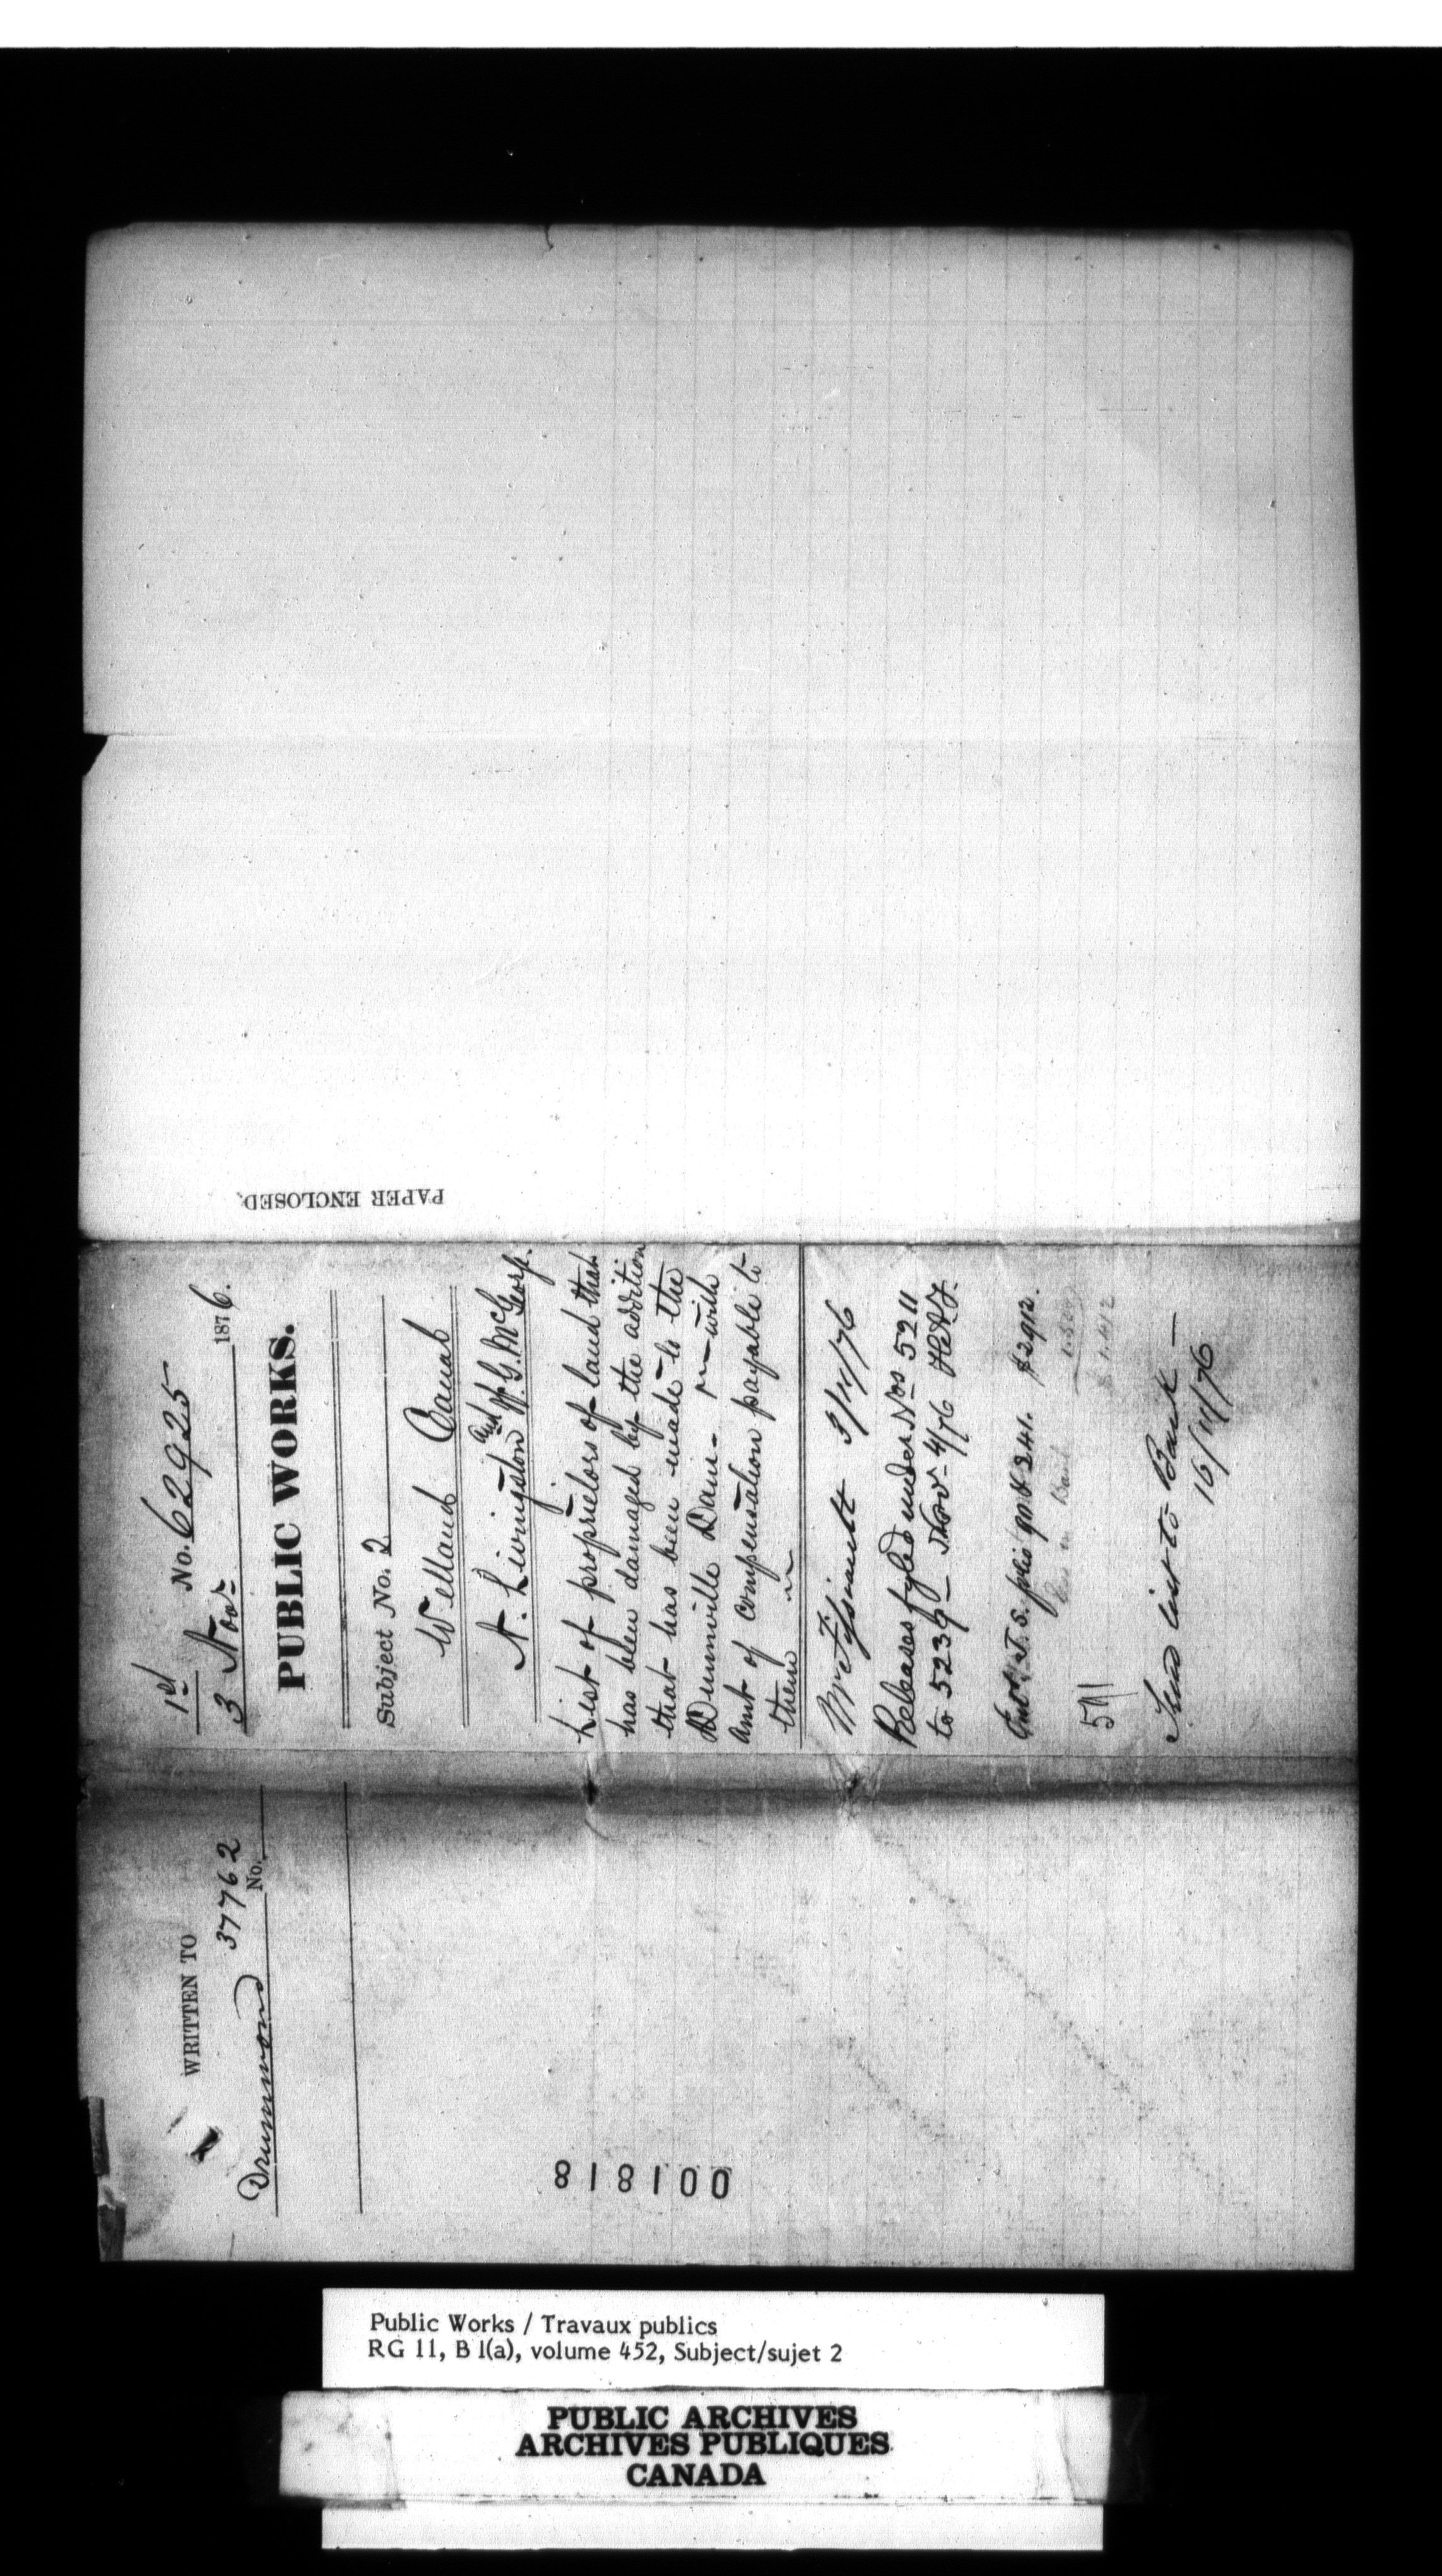 1st No. 62925
3 Novr 1876.
PUBLIC WORKS.
Subject No. 2
Welland Canal
N. Livingston and W. G. McGeorge
List of proprietors of land that
has been damaged by the addition
that has been made to the
Dunnville Dam - with
amt of compensation payable to
them
3/11/76
Releases fyled under Nos 5211
to 5239 - Nov 4/76 H.A.F.
$2912.
1.500
$ 1.412
511
Bank -
16/11/76
WRITTEN TO
Drummond 37762
No.
PAPER ENCLOSED.
001818
Public Works / Travaux publics
RG 11, B 1(a), volume 452, Subject/sujet 2
PUBLIC ARCHIVES
ARCHIVES PUBLIQUES
CANADA